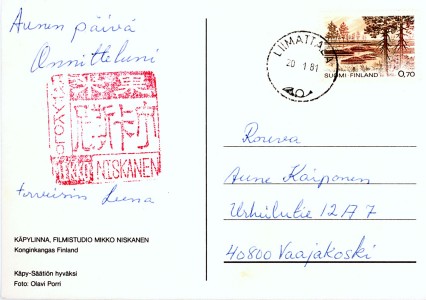 Aunen päivä
Onnitteluni
MIKKO NISKANEN
terveisin Leena
KÄPYLINNA, FILMISTUDIO MIKKO NISKANEN
Konginkangas Finland
Käpy-Säätiön hyväksi
Foto: Olavi Porri
LIIMATTALA
20 1 81
SUOMI FINLAND 0,70
Rouva
Aune Kaiponen
Urheilutie 12 A 7
40800 Vaajakoski